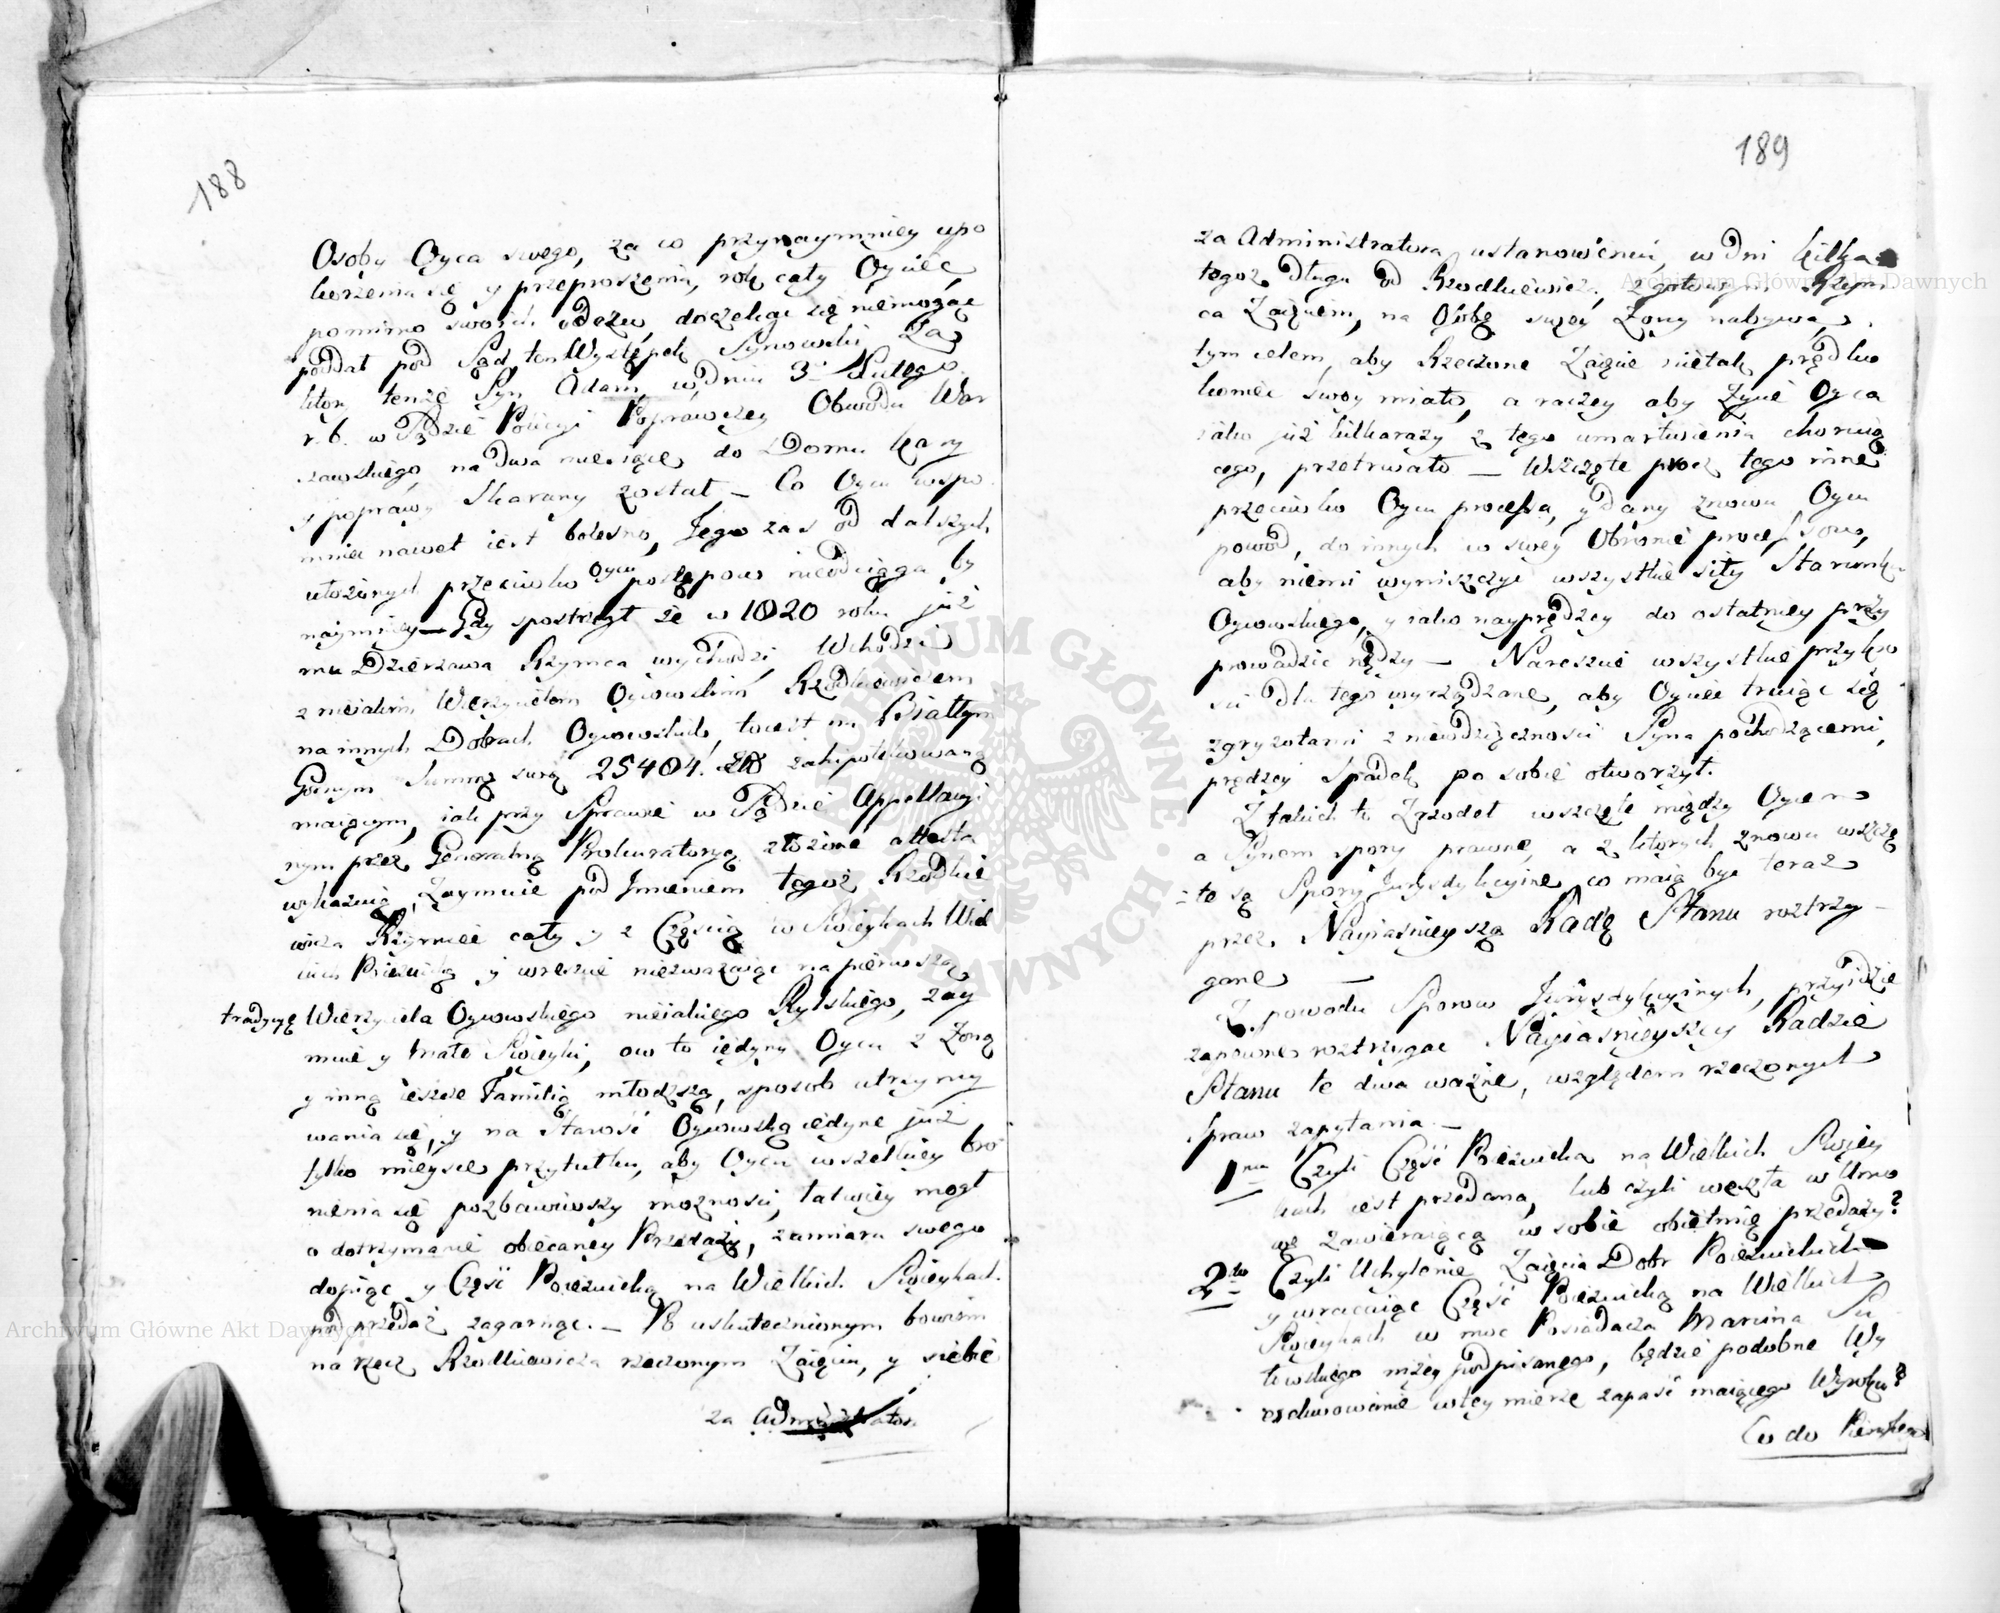 188
Osoby Oyca swego, za co przynaymniey upo
korzenia się y przeproszenia, rok cały Oyciec
pomimo swoich odezw, doczekać się niemogąc
poddał pod Sąd ten Występek Synowski Za
który tenże Syn Adam, w dniu 3 Lutego
r. b. w Sądzie Policyi Poprawczey Obwodu War
szawskiego, na dwa miesiące do Domu Kary
y poprawy skarany został — Co Oycu wspo
mnieć nawet iest bolesno, Jego zaś od dalszych
ułożonych przeciwko Oycu postępow nieodciąga by
naymniey — Gdy spostrzegł że w 1820 roku już
mu Dzierzawa Rzymca wychodzi, Wchodzi
z nieiakim Wierzycielem Oycowskim Rzodkiewiczem
na innych Dobrach Oycowskich, to iest na Białym
Gornym Summę swą 25404. Złł zahipotekowaną
maiącym, iak przy Sprawie w Sądzie Appellacyi
nym przez Generalną Prokuratoryą złożone attesta
wykazuią, Zaymuie pod Imieniem tegoż Rzodkie
wicza Rzymiec cały y z Częścią w Swięykach Wiel
kich y wreszcie niezważaiąc na pierwszą
tradycyę Wierzyciela Oycowskiego nieiakiego Rylskiego, zay
muie y Małe Swięyki, ow to iedyny Oycu z Żoną
y inną ieszcze Familią młodszą, sposob utrzymy
wania się, y na Starość Oycowską iedyne już
tylko mieysce przytułku, aby Oycu wszelkiey bro
nienia się pozbawiwszy możności, łatwiey mogł
o dotrzymanie obiecaney Przedaży, zamiaru swego
dopiąć y Część na Wielkich Swięykach
pod przedaż zagarnąć. — Po uskutecznionym bowiem
na rzecz Rzodkiewicza rzeczonym Zaięciu, y siebie
za Administratora
189
za Administratora ustanowieniu, w dni kilka
tegoż Długu od Rzodkiewicza, z gotowym Rzym
ca Zaięciem, na Osobę swęy Żony nabywa,
tym celem, aby Rzeczone Zaięcie nietak prędko
koniec swoy miało, a raczey aby Życie Oyca
iako już kilkarazy z tego umartwienia choruią
cego, przetrwało — Wszczęte procz tego inne
przeciwko Oycu processa, y dany znowu Oycu
powod, do innych w swey Obronie processow,
aby niemi wyniszczyć wszystkie siły Starunku
Oycowskiego, y iako nayprędzey do ostatniey przy
prowadzić nędzy — Nareszcie wszystkie przykro
ści dla tego wyrządzane, aby Oyciec truiąc się
zgryzotami z niewdzięczności Syna pochodzącemi,
prędzey Spadek po sobie otworzył.
Z takich to Zrzodeł wszczęte między Oycem
a Synem spory prawne, a z których znowu wszczę
te są Spory Jurysdykcyine, co maią być teraz
przez Nayiaśnieyszą Radę Stanu roztrzy
gane —
Z powodu Sporow Jurysdykcyinych, przyidzie
zapewne roztrzygać Nayiaśnieyszey Radzie
Stanu te dwa ważne, względem rzeczonych
Spraw zapytania —
1mo Czyli Część na Wielkich Swięy
kach iest przedana, lub czyli weszła w Umo
wę zawieraiącą w sobie obietnicę przedaży?
2do Czyli Uchylenie Zaięcia Dobr
y wracaiąc Część na Wielkich
Swięykach w moc Posiadacza Marcina Su
kowskiego niżey podpisanego, będzie podobne Wy
exekwowanie w tey mierze zapaść maiącego Wyroku?
Co do Pierwszego